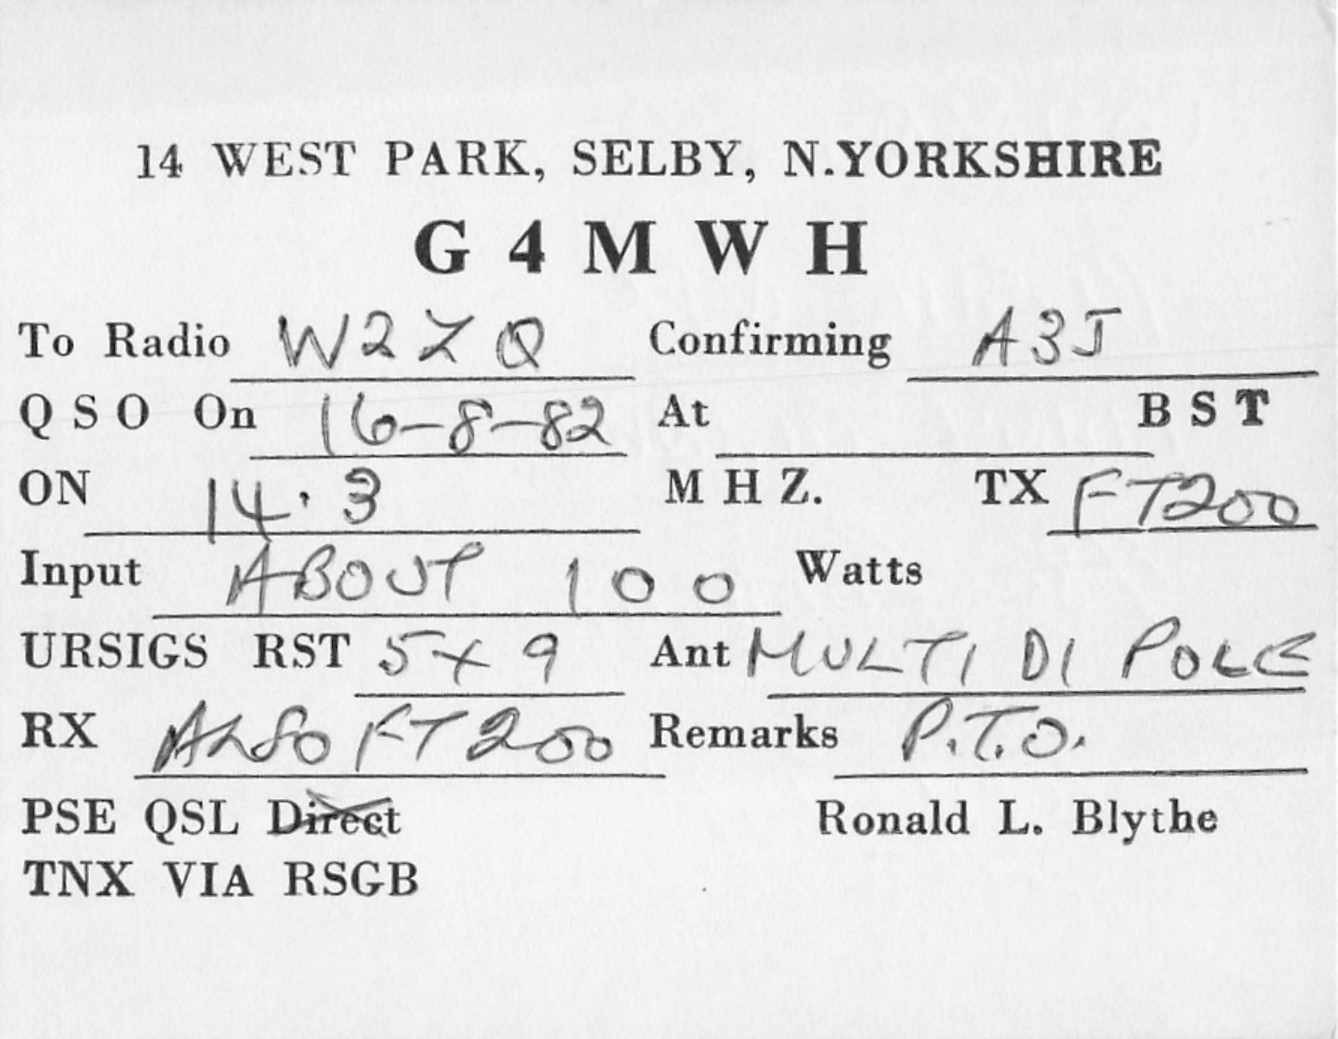 14 WEST PARK, SELBY, N.YORKSHIRE
G4MWH
To Radio W2ZQ Confirming A3J
QSO On 16-8-82 At BST
ON 14.3 MHZ. TX FT200
Input ABOUT 100 Watts
URSIGS RST 5+9 Ant MULTI DI POLE
RX ALSO FT200 Remarks P.T.O.
PSE QSL Direct Ronald L. Blythe
TNX VIA RSGB